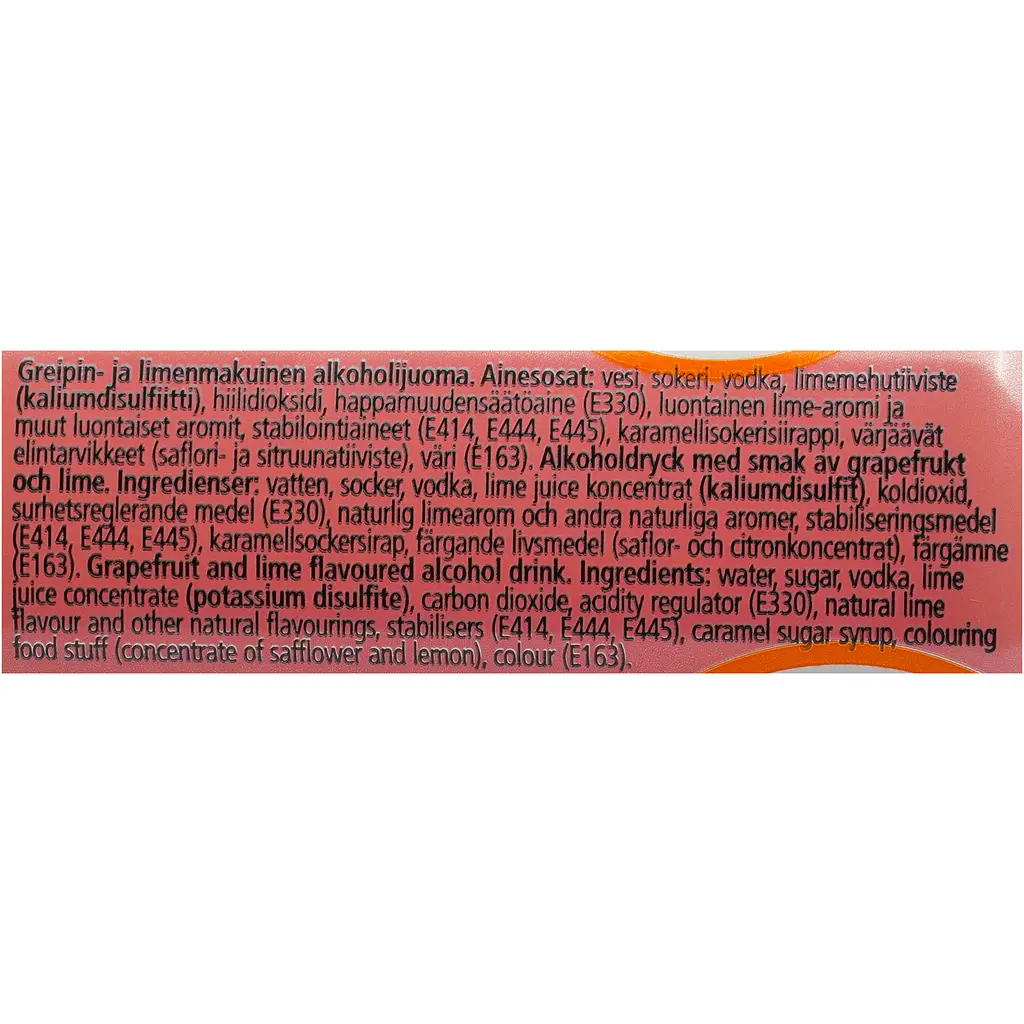 Greipin- ja limenmakuinen alkoholijuoma. Ainesosat: vesi, sokeri, vodka, limemehutiiviste
(kaliumdisulfiitti), hiilidioksidi, happamuudensäätöaine (E330), luontainen lime-aromi ja
muut luontaiset aromit, stabilointiaineet (E414, E444, E445), karamellisokerisiirappi, värjäävät
elintarvikkeet (saflori- ja sitruunatiiviste), väri (E163). Alkoholdryck med smak av grapefrukt
och lime. Ingredienser: vatten, socker, vodka, lime juice koncentrat (kaliumdisulfit), koldioxid,
surhetsreglerande medel (E330), naturlig limearom och andra naturliga aromer, stabiliseringsmedel
(E414, E444, E445), karamellsockersirap, färgande livsmedel (saflor- och citronkoncentrat), färgämne
(E163). Grapefruit and lime flavoured alcohol drink. Ingredients: water, sugar, vodka, lime
juice concentrate (potassium disulfite), carbon dioxide, acidity regulator (E330), natural lime
flavour and other natural flavourings, stabilisers (E414, E444, E445), caramel sugar syrup, colouring
food stuff (concentrate of safflower and lemon), colour (E163).